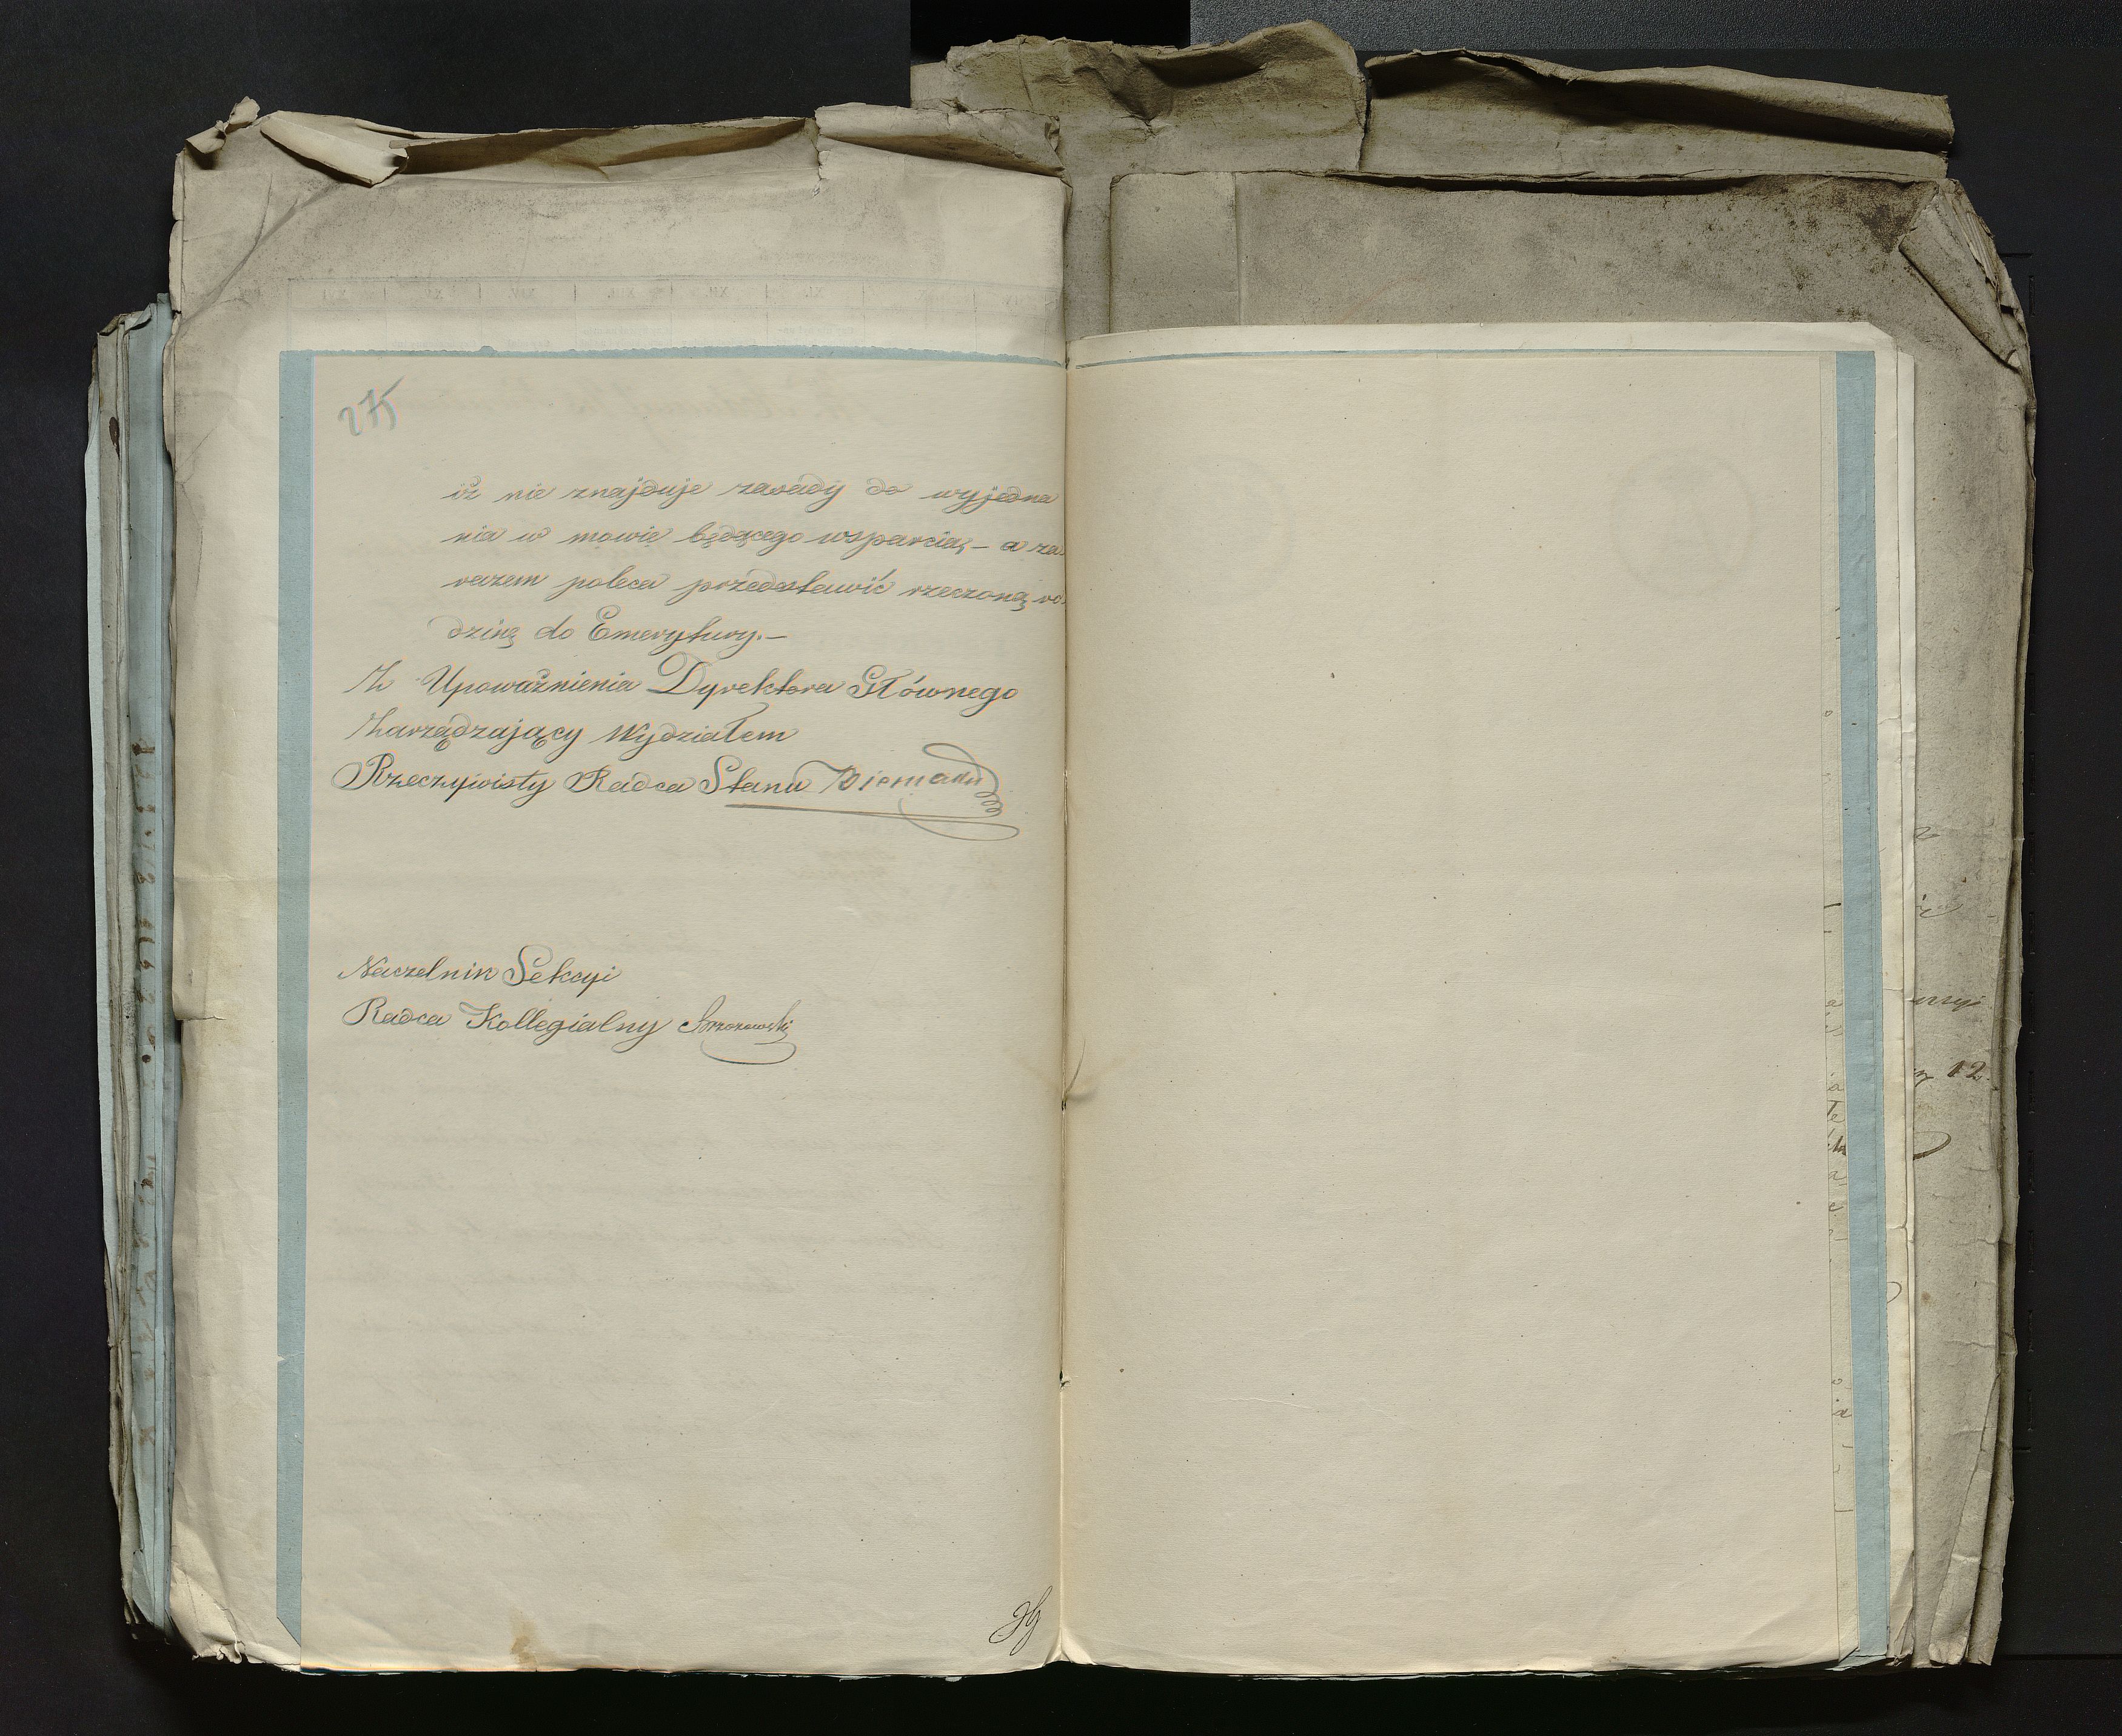 275
iż nie znajduje zasady do wyjedna
nia w mowie będącego wsparcia, – a za
razem poleca przedstawić rzeczoną ro
dzinę do Emerytury. –
Z Upoważnienia Dyrektora Głównego
Zarządzający Wydziałem
Rzeczywisty Radca Stanu
Naczelnik Sekcyi
Radca Kollegialny
12